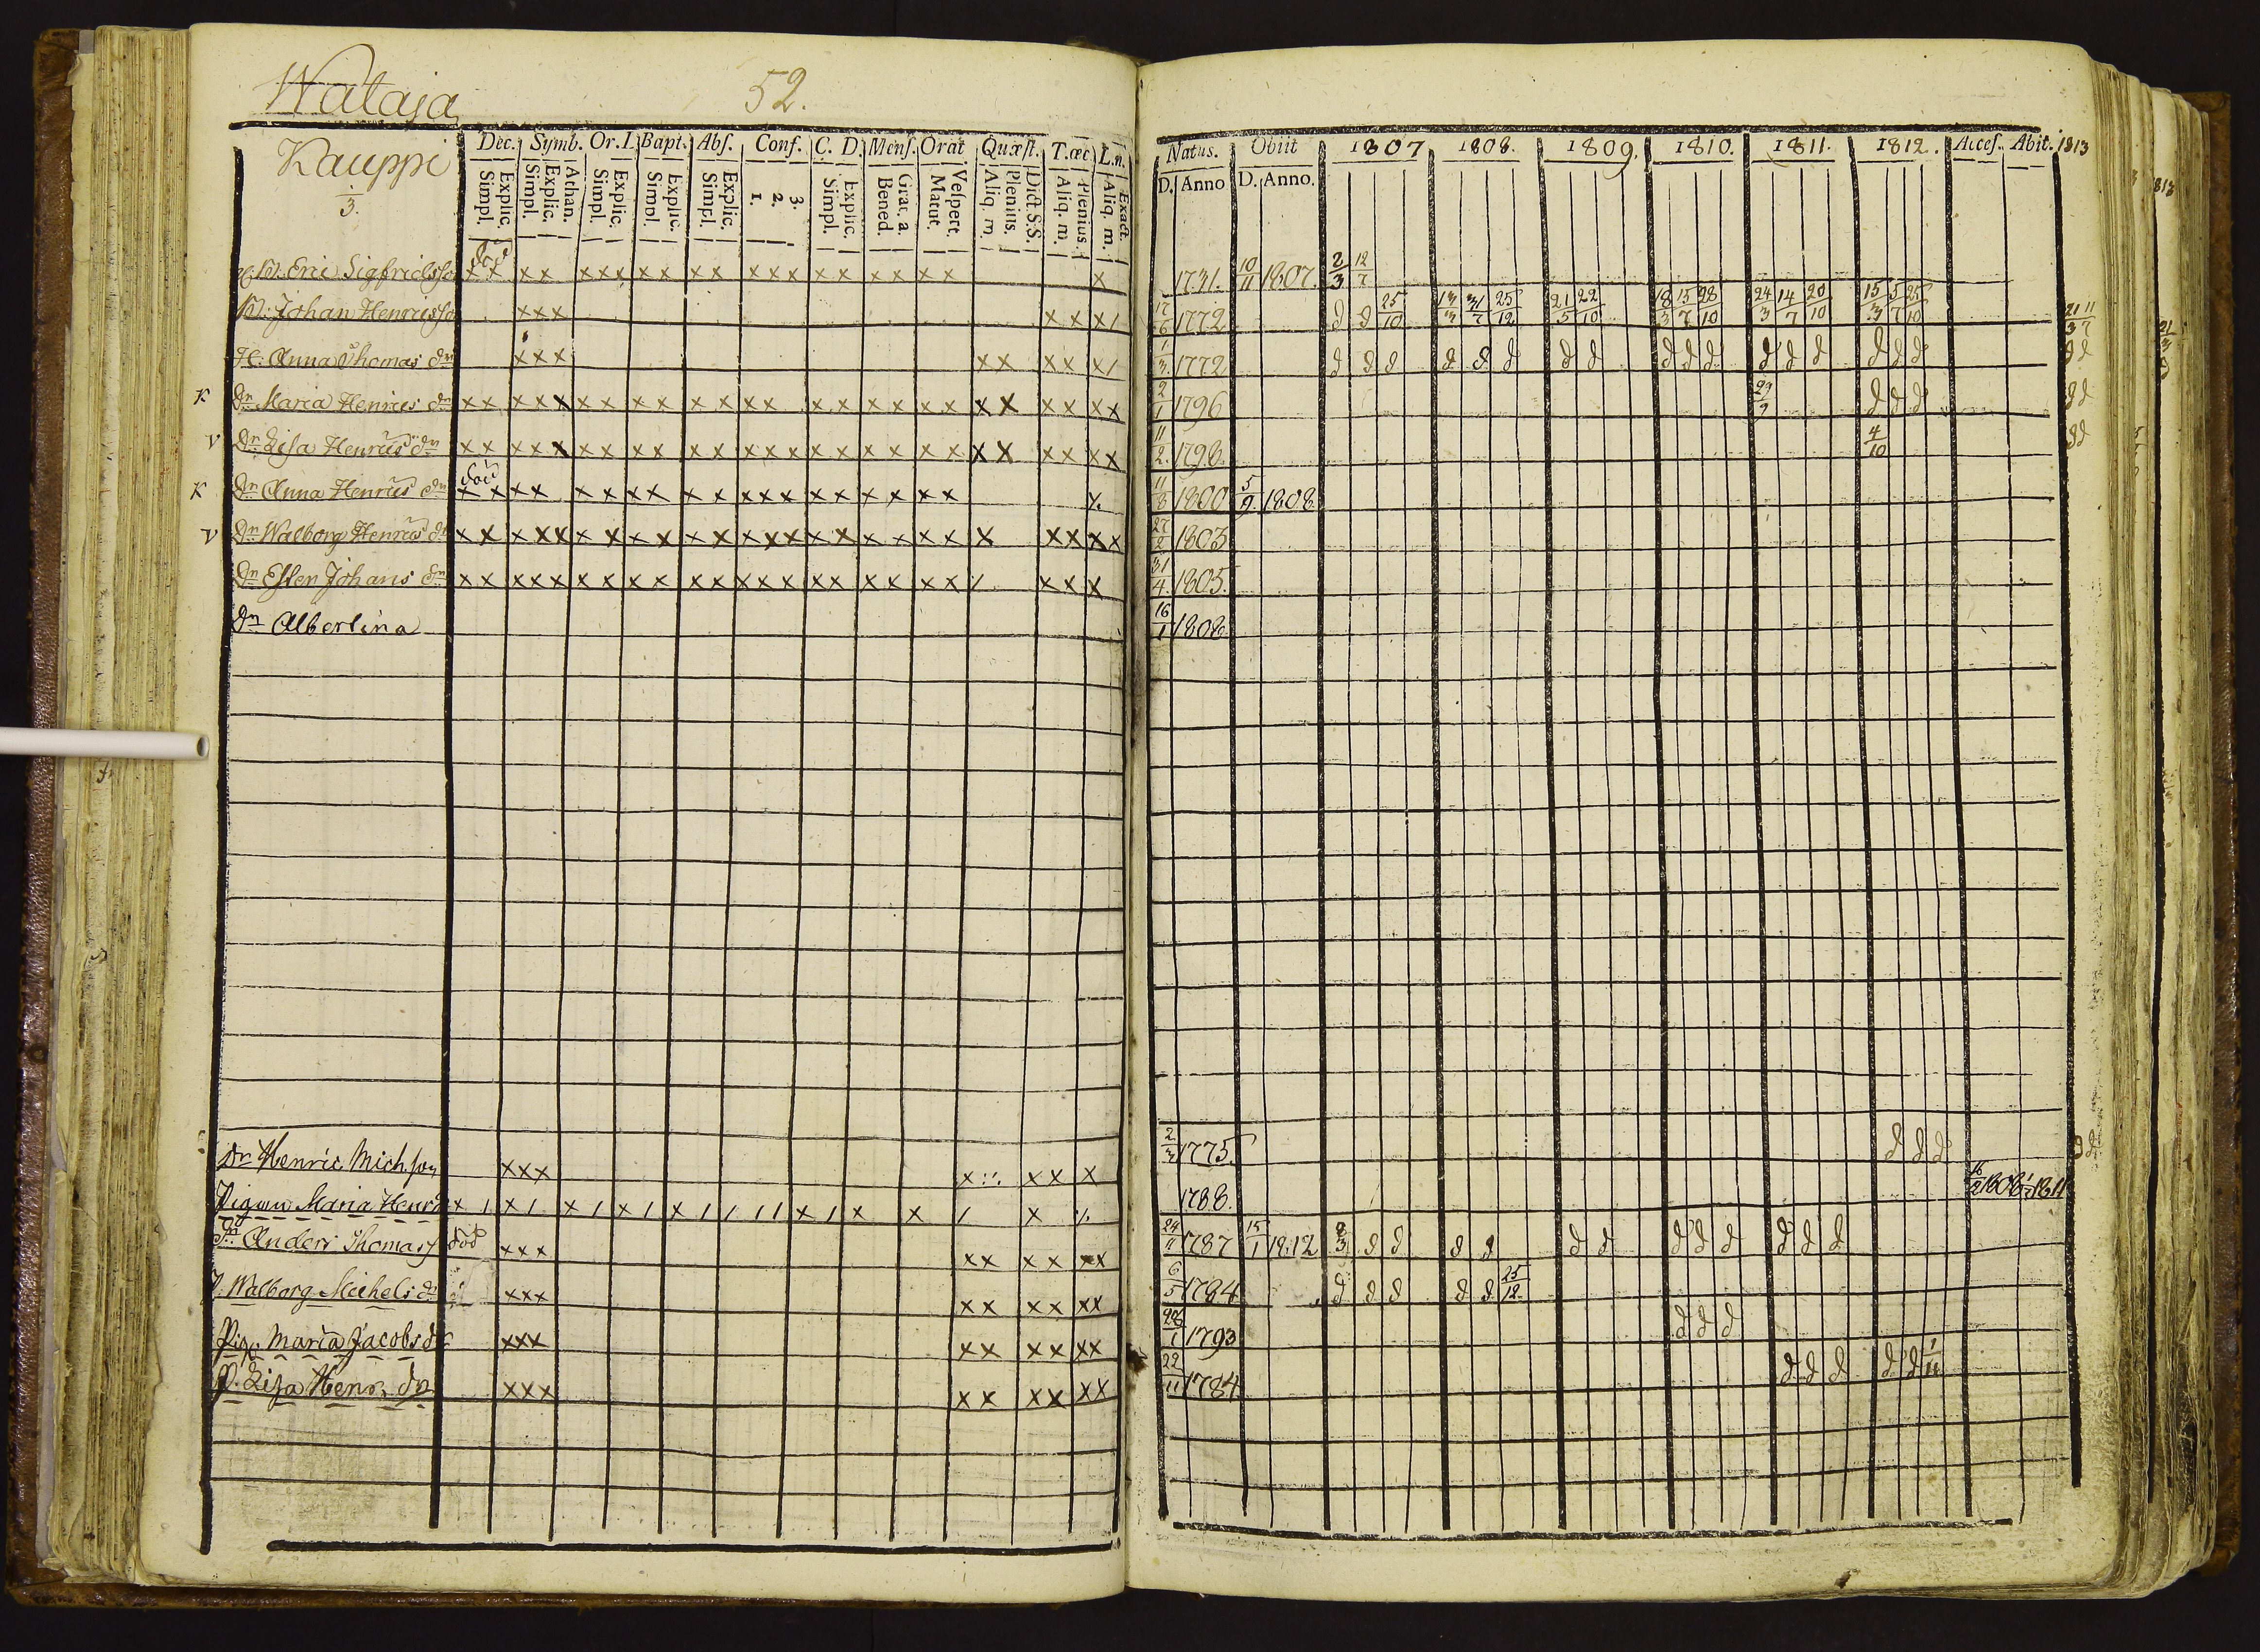 Wataja
52.
Kauppi
1/3.
Dec. Symb. Or. I. Bapt. Abſ. Conf. C. D. Menſ. Orat. Quæſt. T. œc. L. n.
Explic. Simpl. Athan. Explic. Simpl. Explic. Simpl. Explic. Simpl. Explic. Simpl. 3. 2. 1. Explic. Simpl. Grat. a. Bened. Veſpert. Matut. Dict. S. S. Plenius. Aliq. m. Plenius. Aliq. m. Exact. Aliq. m.
Natus. Obiit 1807. 1808. 1809. 1810. 1811. 1812. Acceſ. Abit. 1813
D. Anno D. Anno.
Eric Sigfridsson död xx xx xxx xx xx xxx xx xx xx x 1731. 10/11 1807. 2/3 12/7
Johan Henricsson xxx xx x/ 17/6 1772 d d 25/10 13/3 31/7 25/12 21/5 22/10 18/3 15/7 28/10 24/3 14/7 20/10 15/3 5/7 25/10 21/3 11/7
H: Anna Thomas dr xxx xx xx x/ 1/3 1772 d d d d d d d d d d d d d d d d d d d
K Dr Maria Henrics dr xx xxx xx xx xx xxx xx xx xx xx xx xx 2/1 1796 29/9 d d d d d
V Dr Lisa Henrics dr xx xxx xx xx xx xxx xx xx xx xx xx xx 11/2 1798. 4/10 d d
K Dr Anna Henrics dr död xx xx xx xx xx xxx xx xx xx 11/8 1800 5/9. 1808.
V Dr Walborg Henrics dr xx xxx xx xx xx xxx xx xx xx x xx xx 27/2 1803
Dr Ester Johans dr xx xxx xx xx xx xxx xx xx xx / xx x 31/4. 1805.
Dr Albertina 16/1 1808
Dr Henric Mich.son xxx x xx x 2/3 1775. d d d d d
Pigan Maria Henr x / x / x / x / x / / / / x / x x / x 1788. 16/2 1808 1811
Anders Thomas död xxx xx xx xx 24/11 1787 15/1 1812 d d d d d d d d d d d d
P. Walborg Michels dr xxx xx xx xx 6/5 1784 d d d d d 25/12
Pig. Maria Jacobs dr xxx xx xx xx 28/1 1793 d d d
P. Lisa Henr. dr xxx xx xx xx 22/11 1784 d d d d d 1/11